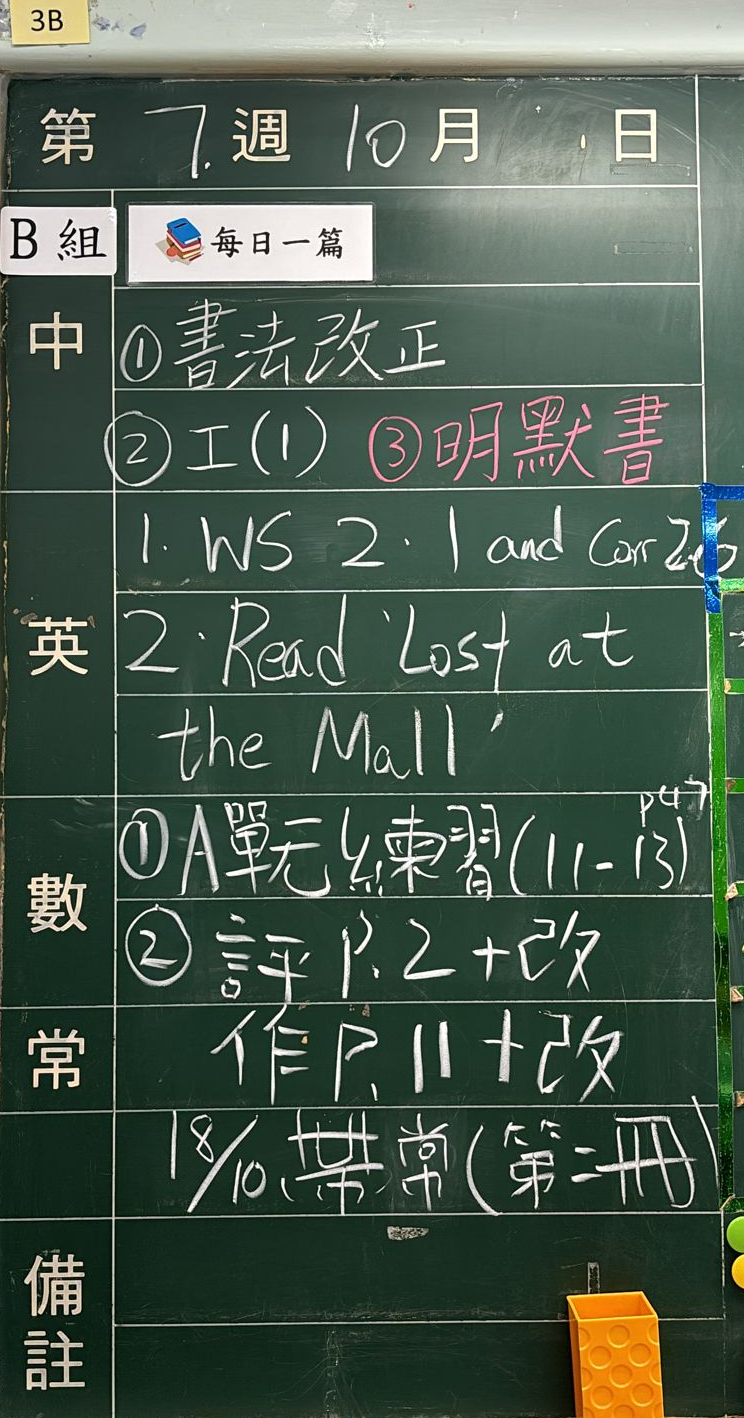 3B
第 7. 週 10 月 日
B 組 每日一篇
中 ①書法改正
②工(1) ③明默書
1. WS 2.1 and Corr 2.6
英 2. Read 'Lost at
the Mall'
p47
數 ①A單元練習(11-13)
② 評 P.2 +改
常 作 P.11 +改
18/10、帶常(第二冊)
備註